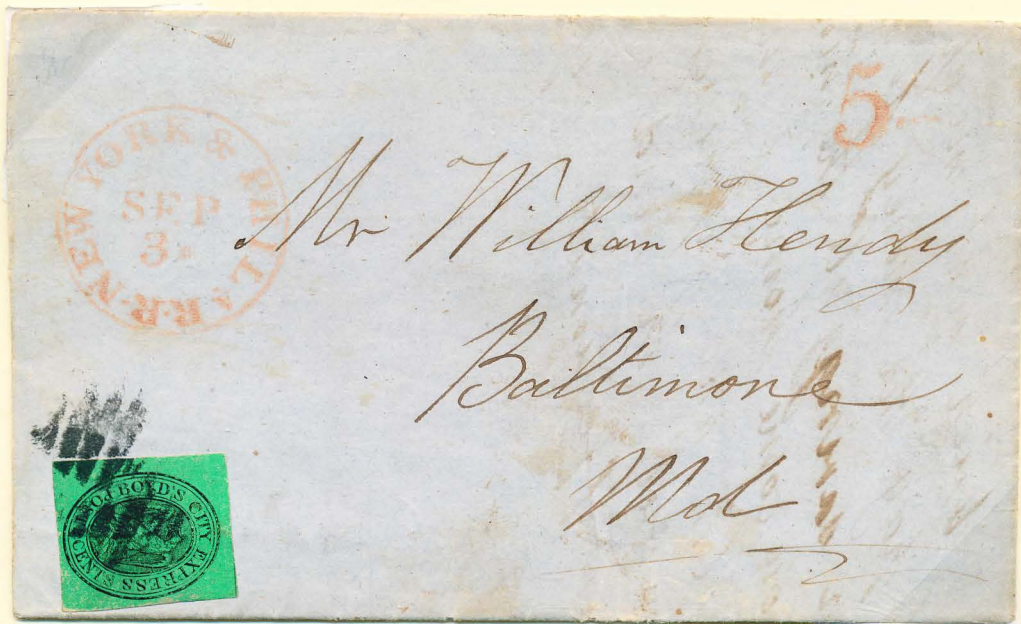 NEW YORK & PHILA. R.R.
SEP
3
5
Mr William Hendy
Baltimore
Md
BOYD'S CITY EXPRESS POST
CENTS